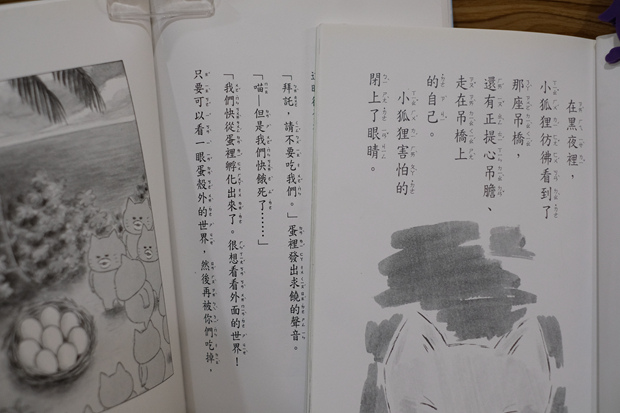 在黑夜裡，
小狐狸彷彿看到了
那座吊橋，
還有正提心吊膽、
走在吊橋上
的自己。
小狐狸害怕的
閉上了眼睛。
「拜託，請不要吃我們。」蛋裡發出求饒的聲音。
「喵—但是我們快餓死了……」
「我們快從蛋裡孵化出來了。很想看看外面的世界！
只要可以看一眼蛋殼外的世界，然後再被你們吃掉，